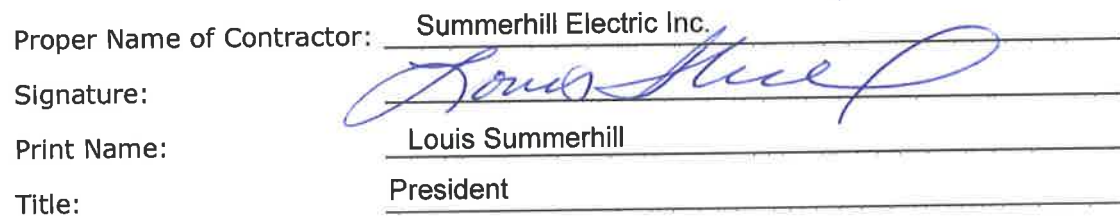 Proper Name of Contractor: Summerhill Electric Inc.
Signature: Louis
Print Name: Louis Summerhill
Title: President